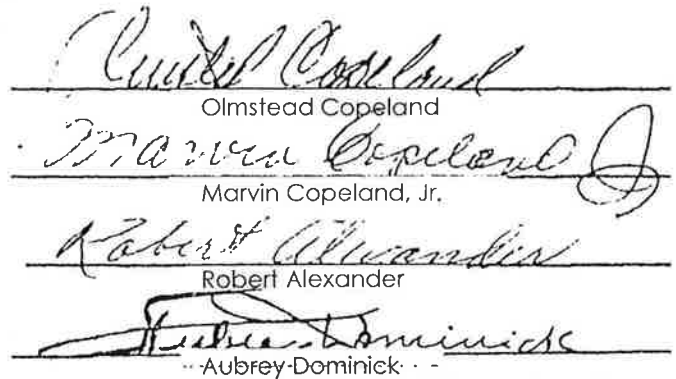 Olmstead Copeland
Olmstead Copeland
Marvin Copeland Jr
Marvin Copeland, Jr.
Robert Alexander
Robert Alexander
Aubrey Dominick
Aubrey Dominick